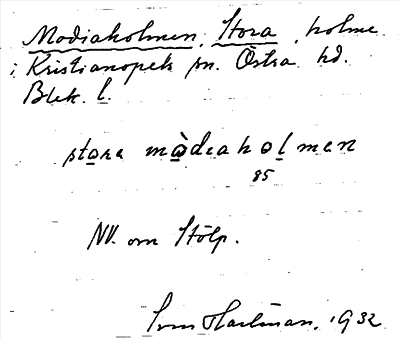 Modiaholmen, Stora, holme
i Kristianopels sn. Östra hd.
Blek. l.
stora mòdiaholmen
85
NV. om Stölp.
Sven Hartman, 1932